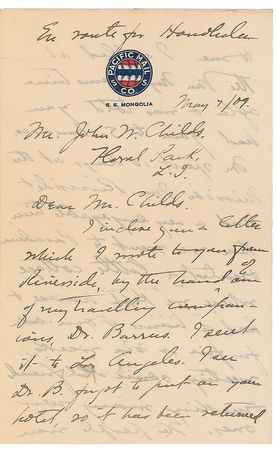 En route for Honolulu
PACIFIC MAIL
S S CO.
S. S. MONGOLIA
May 7/09.
Mr. John W. Childs,
Floral Park,
L.I.
Dear Mr. Childs.
I inclose you a letter
which I wrote to you from
Riverside, by the hand of
of my travelling compan-
ions, Dr. Barrus. I sent
it to Los Angeles. I see
Dr. B. forgot to put on your
hotel so it has been returned